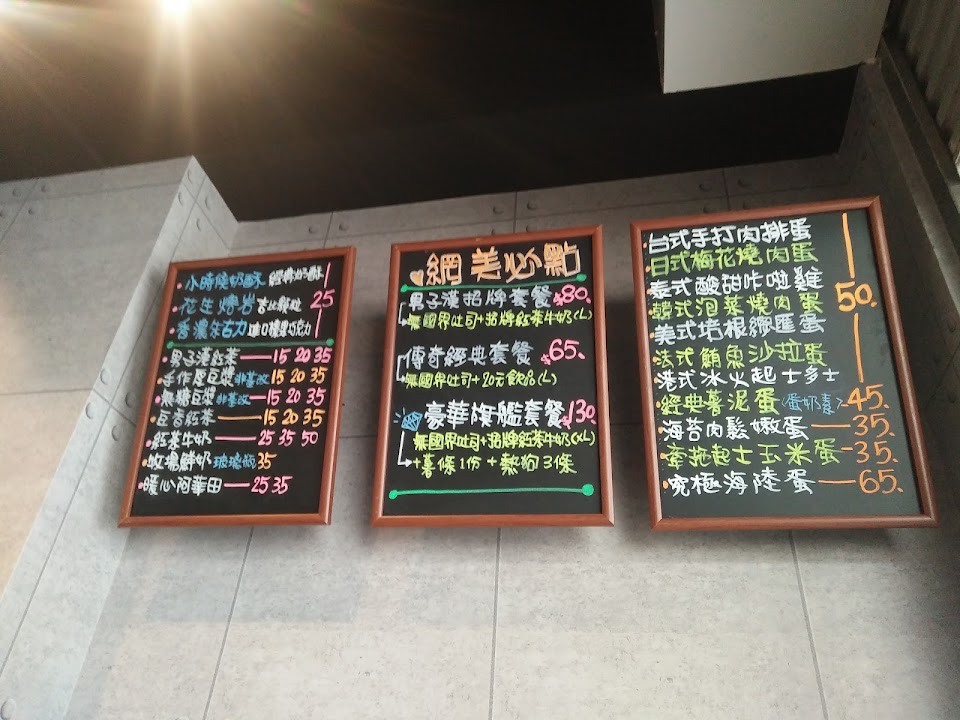 小時候奶酥 經典奶酥
花生熔岩 吉比顆粒 25
香濃生古力
男子漢紅茶 — 15 20 35
手作原豆漿 非基改 15 20 35
無糖豆漿 非基改 — 15 20 35
豆香紅茶 — 15 20 35
紅茶牛奶 — 25 35 50
牧場鮮奶 玻璃瓶 35
暖心阿華田 — 25 35
網美必點
男子漢招牌套餐 $80.
無國界吐司+招牌紅茶牛奶(L)
傳奇經典套餐 $65.
無國界吐司+20元飲品(L)
豪華旗艦套餐 $130.
無國界吐司+招牌紅茶牛奶(XL)
+薯條1份+熱狗3條
台式手打肉排蛋
日式梅花燒肉蛋
泰式酸甜咔啦雞
韓式泡菜燒肉蛋 50.
美式培根繽匯蛋
法式鮪魚沙拉蛋
港式冰火起士多士
經典薯泥蛋(蛋奶素) 45.
海苔肉鬆嫩蛋 — 35.
牽拖起士玉米蛋 — 35.
究極海陸蛋 — 65.